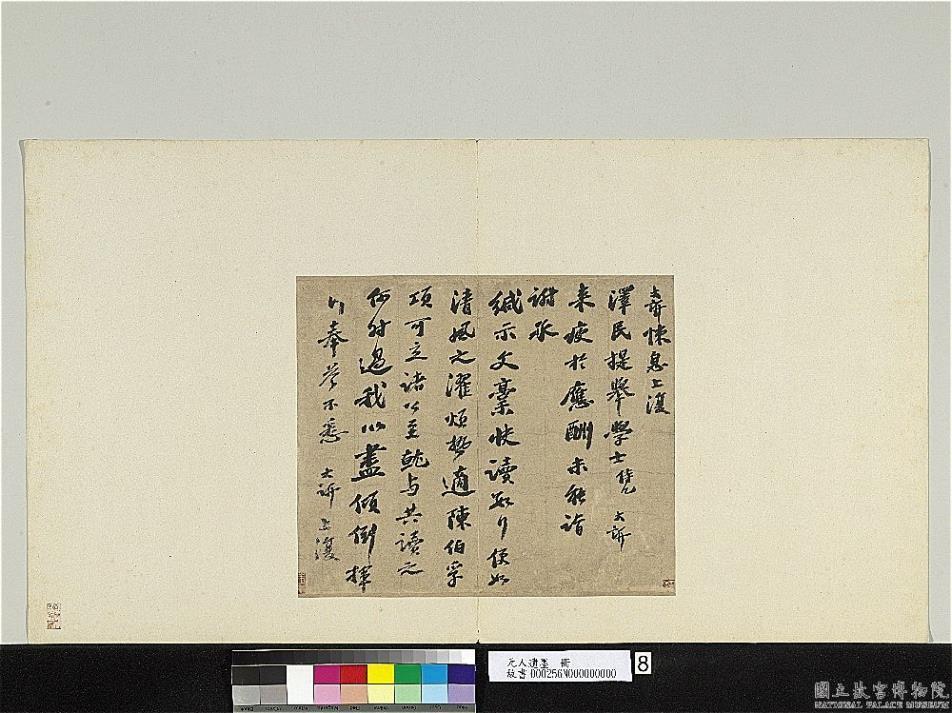 大訢悚息上復
澤民提舉學士僚兄大訢
来疲於應酬未能詣
謝承
緘示文稾快讀數行便如
清風之濯煩拗適陳伯孚
項可立諸公至就与共讀之
何時過我以盡傾倒揮
汗奉答不悉大訢上復
元人遺墨 冊
故書000256N000000000
8
國立故宮博物院
NATIONAL PALACE MUSEUM